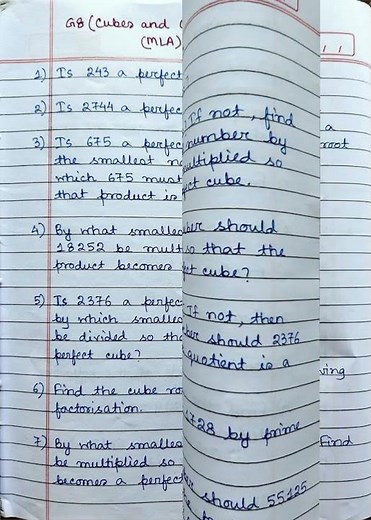 G8 (Cubes and
(MLA)
1) Is 243 a perfect
2) Is 2744 a perfec
3) Is 675 a perfec ; If not, find
the smallest number by
which 675 must multiplied so
that product is fect cube.
4) By what smalles ber should
18252 be mult so that the
product becomes cube?
5) Is 2376 a perfec If not, then
by which smalles ber should 2376
be divided so tha quotient is a
perfect cube?
6) Find the cube ro 1728 by prime
factorisation.
7) By what smalles should 55125
be multiplied so
becomes a perfec
a
root
ving
Find